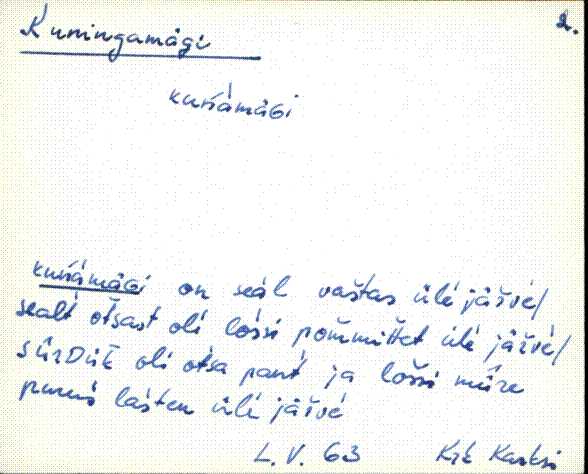 Kuningamägi
2.
kuńámäGi
kuńámäGi on seál vaštas ülé jäŕvé/
sealt otsast oli lośsi pommittet ülé jäŕvé/
sûrDüḱ oli otsa pant ja lośsi müre
puruś lasten ülé jäŕvé
L. V. 63 Krk Karksi